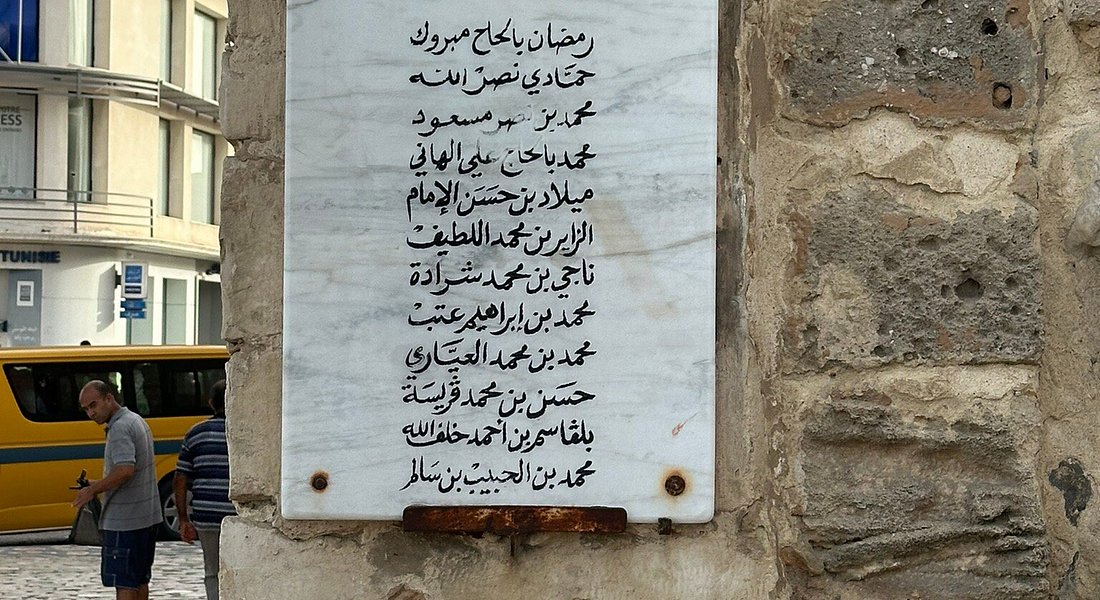 رمضان بالحاج مبروك
حمَّادي نصرْ الله
محمد بن نصر مسعود
محمد بالحاج علي الهاني
ميلاد بن حَسَن الإمام
الزاير بن محمد اللطيفْ
ناجي بن محمد شرادة
محمد بن إبراهيم عتبْ
محمد بن محمد العيَّاري
حسَن بن محمد ڨريسَة
بلڨاسم بن احمد خلف الله
محمد بن الحبيبْ بن سَالم
TUNISIE